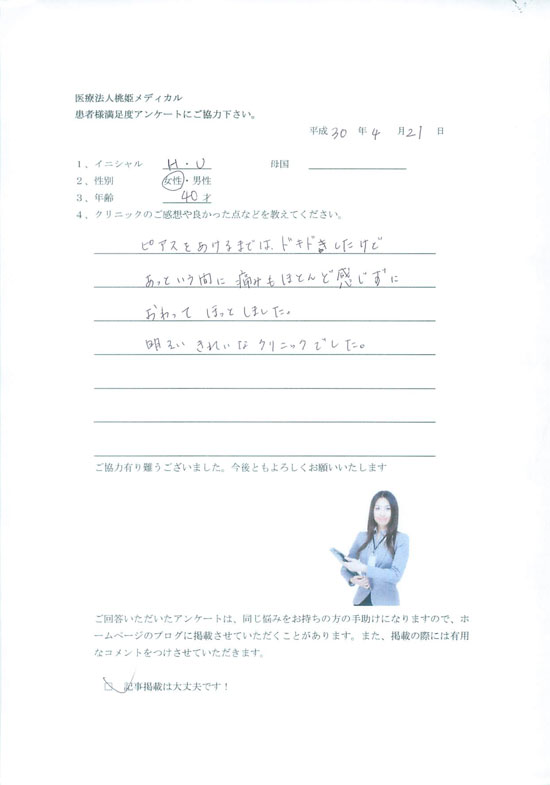 医療法人桃姫メディカル
患者様満足度アンケートにご協力下さい。
平成 30 年 4 月 21 日
1、イニシャル H・U 母国
2、性別 女性・男性
3、年齢 40才
4、クリニックのご感想や良かった点などを教えてください。
ピアスをあけるまでは、ドキドキしたけど
あっという間に 痛みもほとんど感じずに
おわって ほっと しました。
明るい きれいな クリニックでした。
ご協力有り難うございました。今後ともよろしくお願いいたします
ご回答いただいたアンケートは、同じ悩みをお持ちの方の手助けになりますので、ホ
ームページのブログに掲載させていただくことがあります。また、掲載の際には有用
なコメントをつけさせていただきます。
□ 記事掲載は大丈夫です！